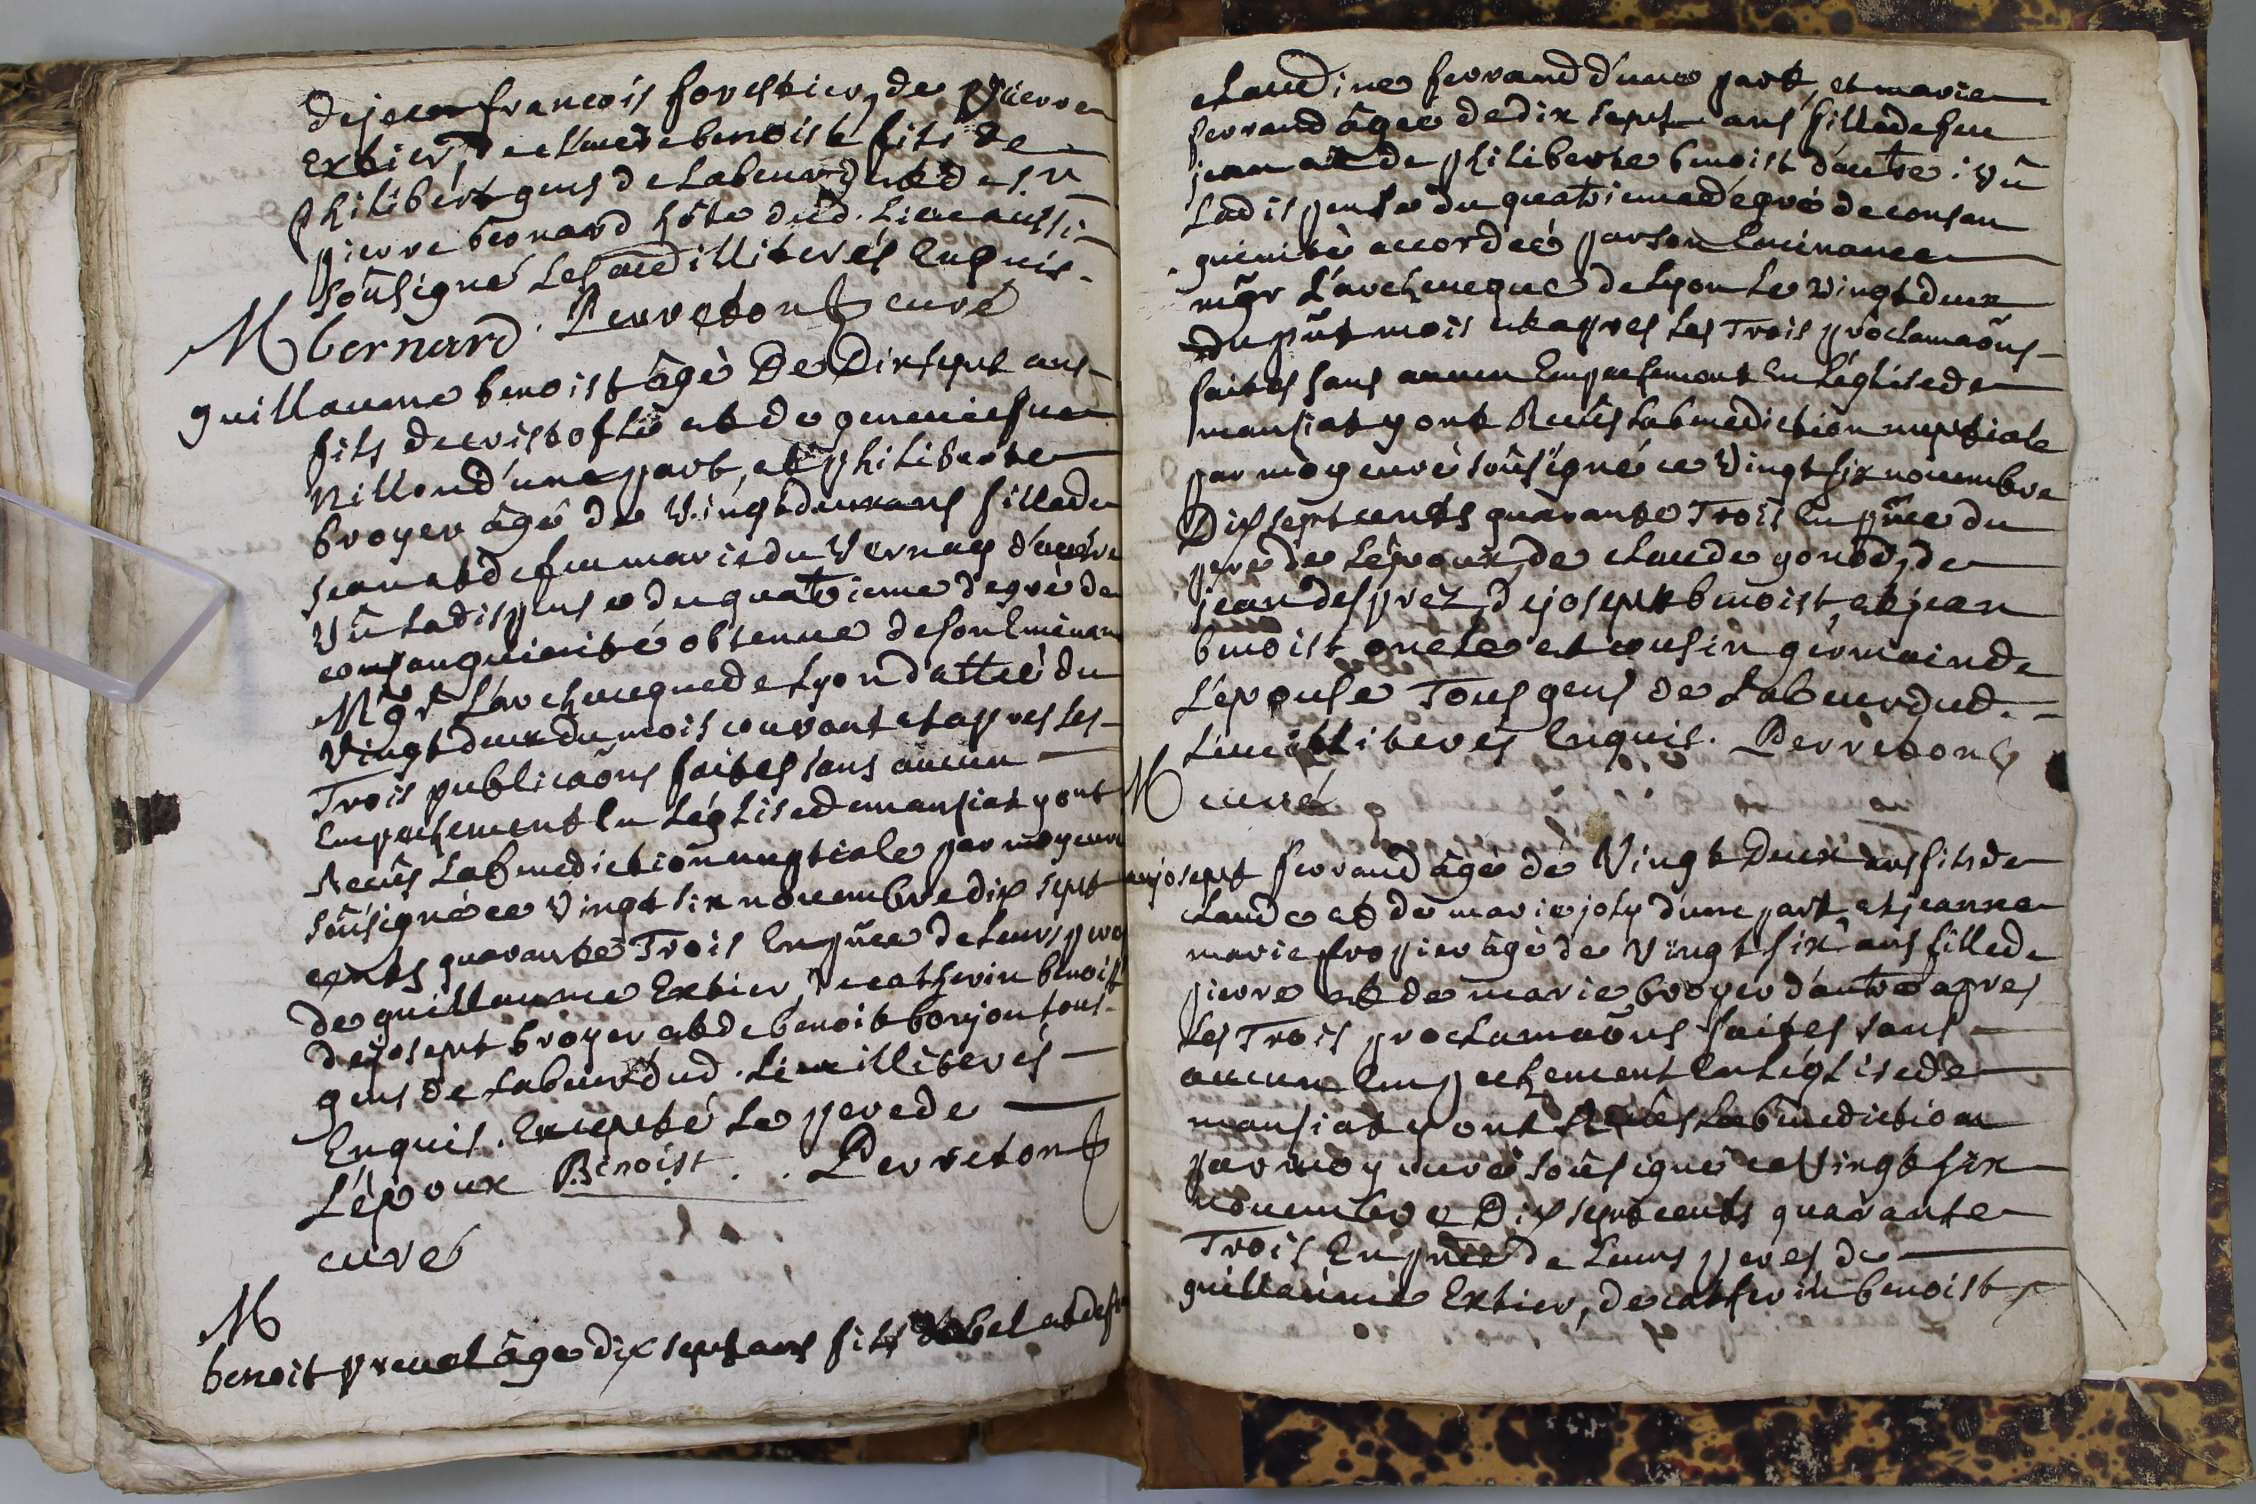 de jean francois forestier, de pierre
Extier, de claude benoist fils de
philibert gens de labeur, et de Sr
pierre bernard hôte dud. lieu aussi
soûsigné les aud illiterés Enquis.
M bernard. Perreton curé
guillaume benoist âgé De Dixsept ans
fils decristofle et de genevieve
Nillon d'une part, et philiberte
broyer âgé de Vingtdeuxans fillede
jean et defeu marie du Vernay d'autre
Vû la dispense du quatrieme degré de
consanguinité obtenue de son Eminence
Mgr L'archeveque de Lyon dattée du
Vingtdeux du mois courant et apres les
Trois publicaôns faites sans aucun
Empechement En L'église de mansiat y ont
Recûs la benediction nuptiale par moy curé
soûsigné ce Vingt six novembre dix sept
cents quarante Trois En pñce de leurs peres
de guillaume Extier, de catherin benoist
de josept broyer et de benoit bonjon tous
gens de labeur dud. lieu illiterés
Enquis. Excepté le pere de
L'époux Benoist .. Perreton
curé
M
benoit prevel âge dix sept ans fils d'abel et de
claudine ferrand d'une part, et marie
ferrand âgée de dix sept ans fille de feu
jean et de philiberte benoist d'autre : vû
La dispense du quatrieme degré de consan
guinité accordéé par son Eminence
mgr L'archeveque de Lyon le Vingtdeux
du pñt mois et apres les Trois proclamaôns
faites sans aucun Empechement En L'église de
mansiat y ont Recûs la benediction nuptiale
par moy curé soûsigné ce Vingt six novembre
Dix sept cents quarante Trois En pñce du
pere de L'époux, de claude gonod, de
jean desprez, de josept benoist, et jean
benoist oncle et cousin germain de
L'épouse Tous gens de Labeur dud.
Lieu illiterés Enquis. Perreton
M curé
josept ferrand âgé de Vingt Deux ans fils de
claude et de marie joly d'une part, et jeanne
marie propier âgé de Vingt six ans fille de
pierre et de marie broyer d'autre apres
Les Trois proclamaôns faites sans
aucun Empechement En L'église de
mansiat y ont Recûs la benediction
par moy curé soûsigné ce Vingt six
novembre Dix sept cents quarante
Trois En pñce de Leurs peres, de
guillaume Extier, de catherin benoist